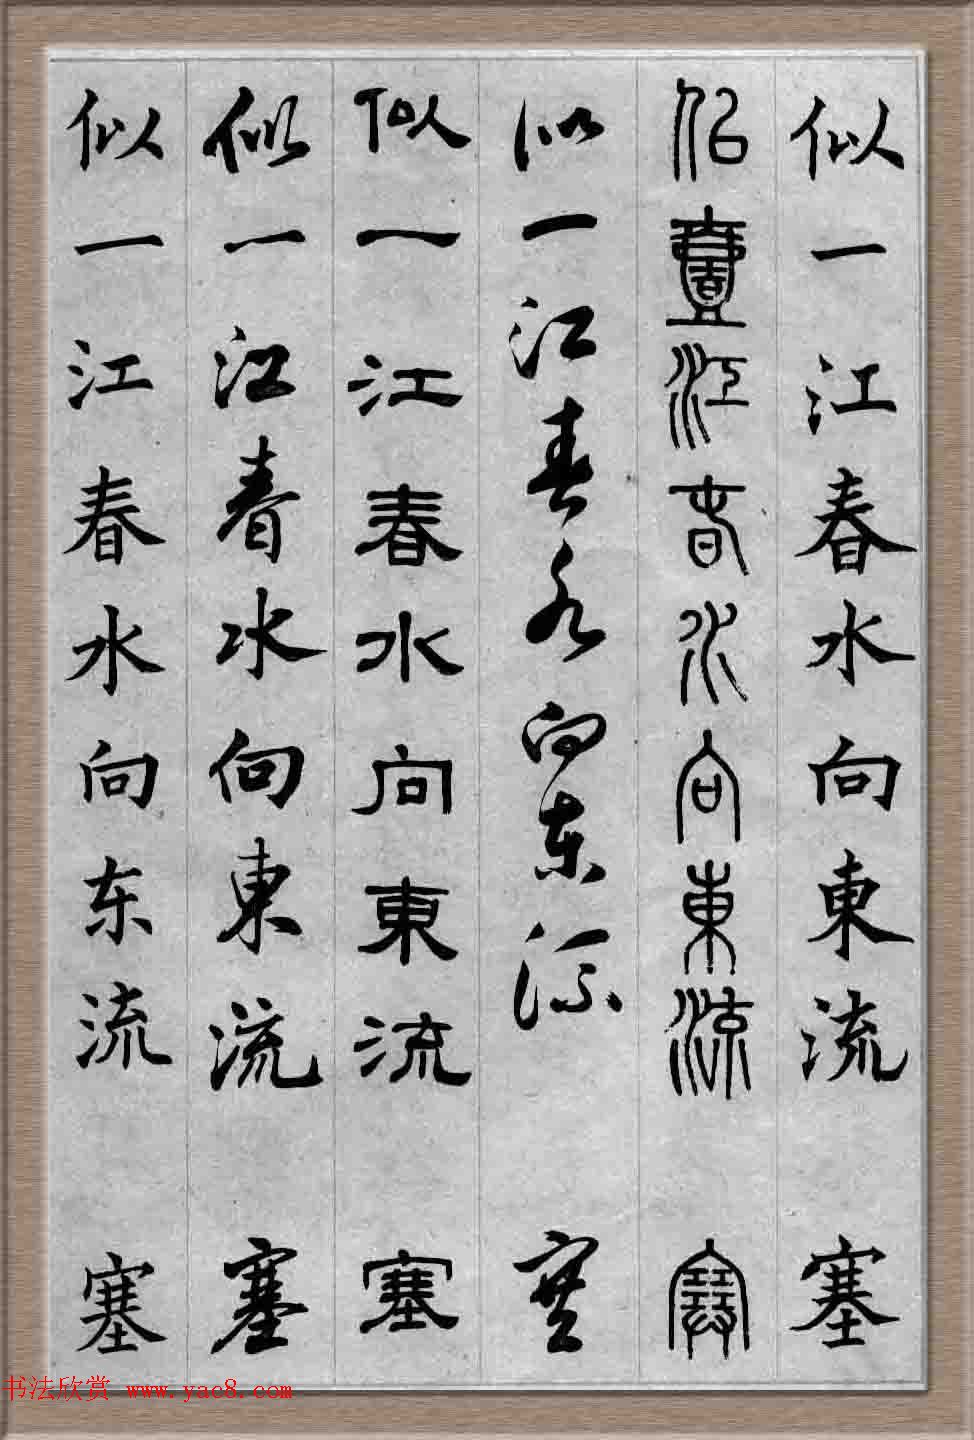 似一江春水向東流 塞
似壹江春水向東流 塞
似一江春水向東流 塞
似一江春水向東流 塞
似一江春水向東流 塞
似一江春水向东流 塞
书法欣赏 www.yac8.com